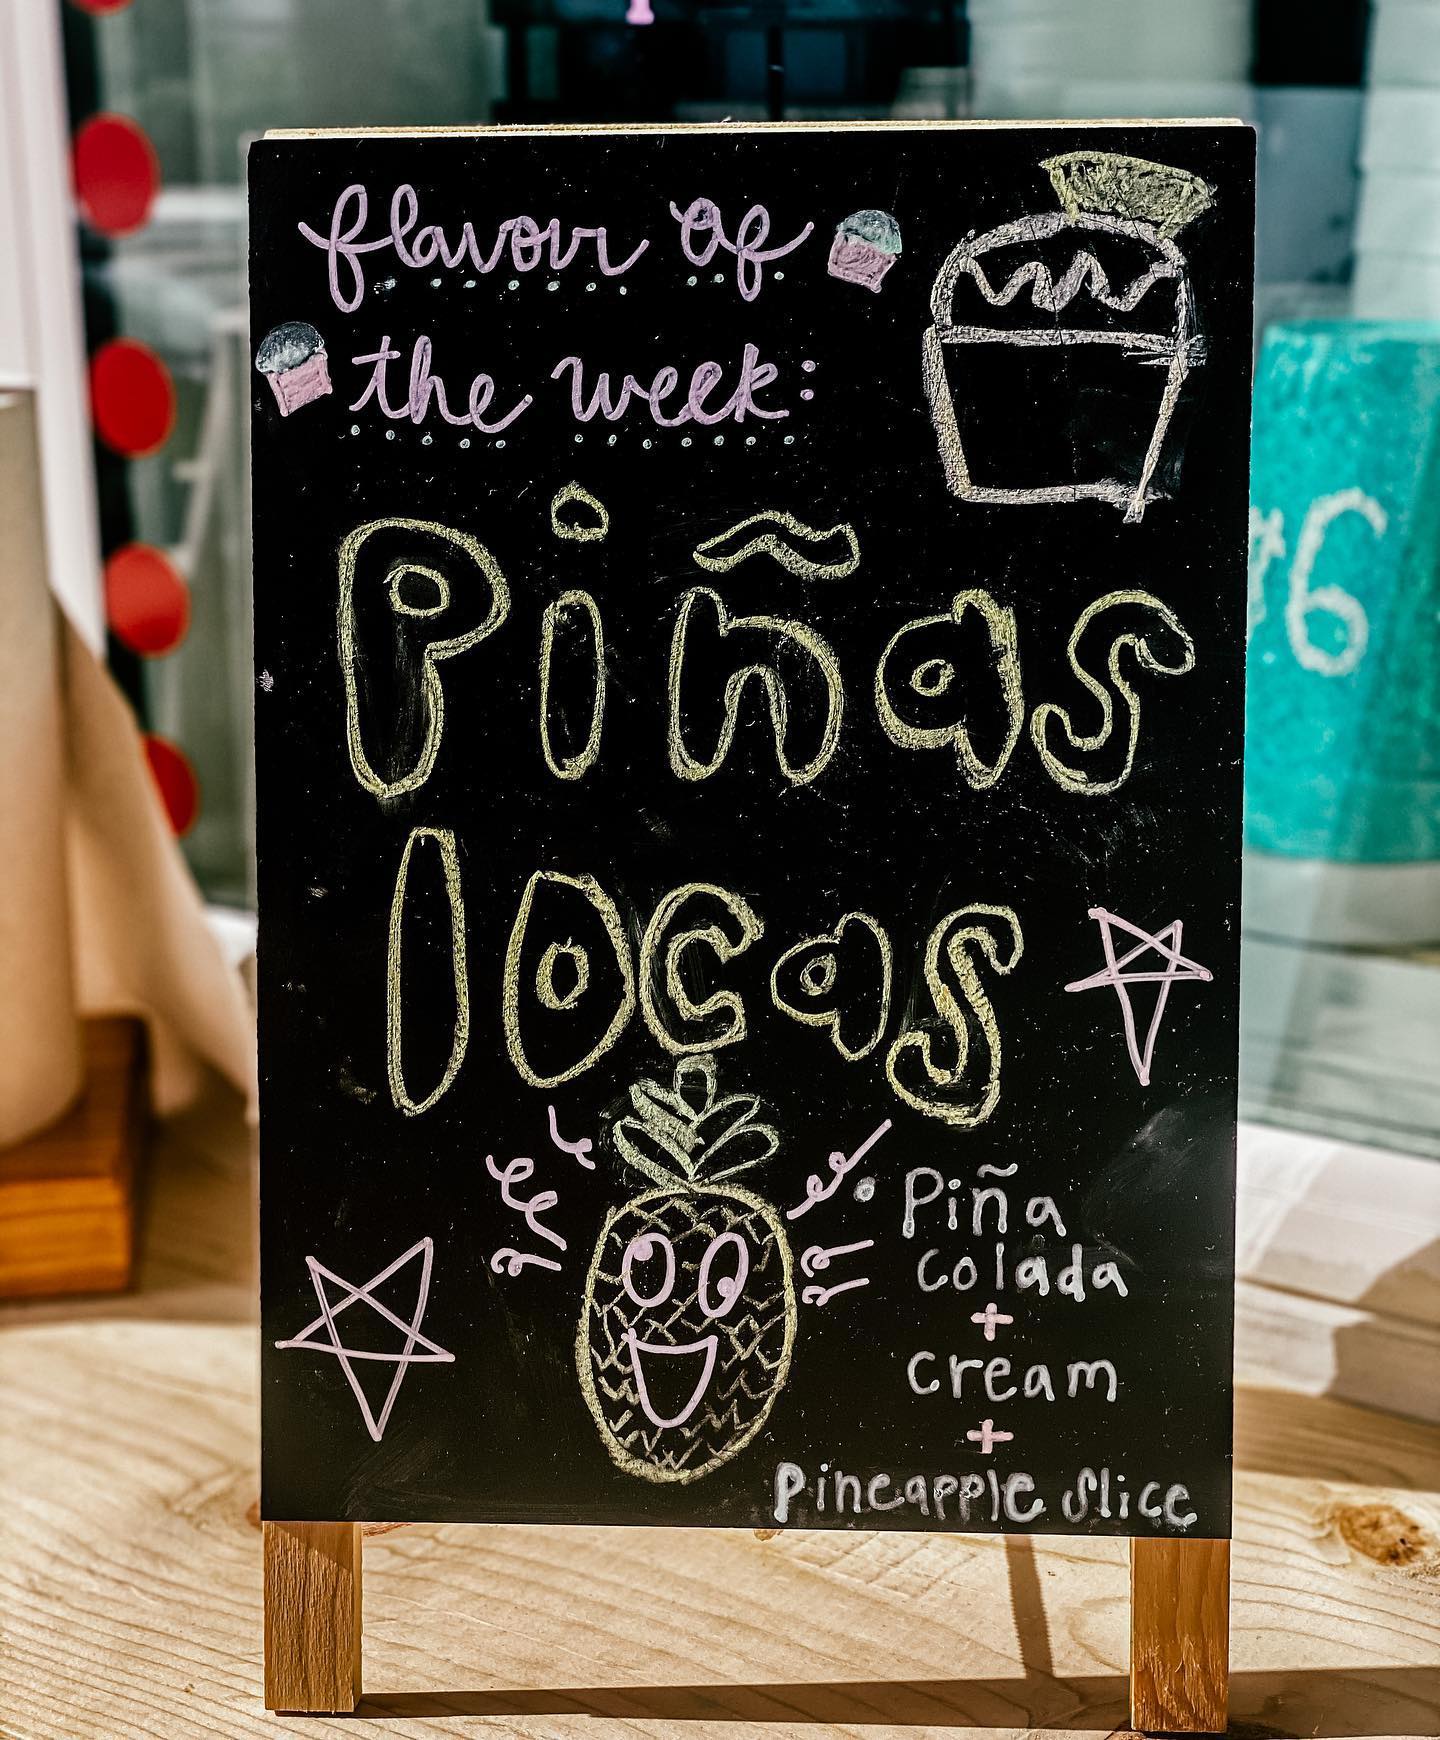 flavour of
the week:
Piñas
locas
• Piña
colada
+
cream
+
Pineapple Slice
6